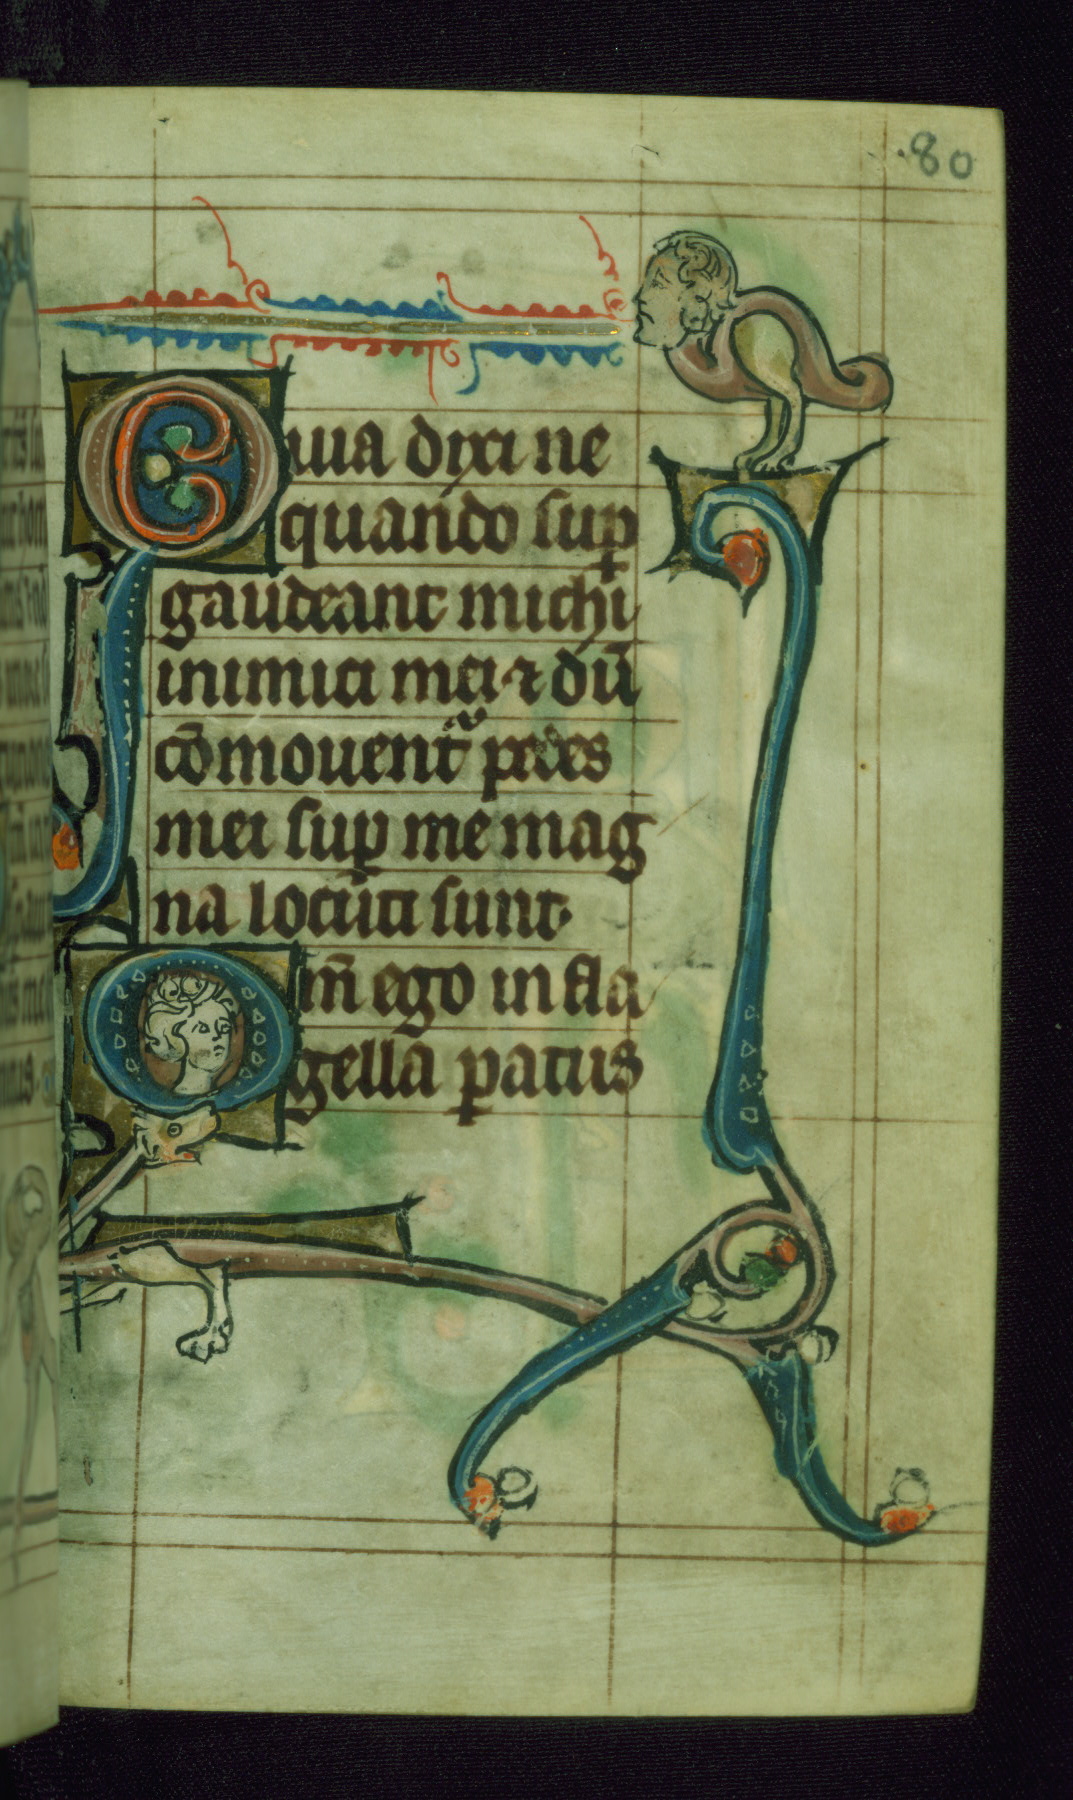 80
Quia dixi ne
quando sup
gaudeant michi
inimici mei ⁊ dū
cōmouent᷑ pedes
mei sup me mag
na locuti sunt.
Qm̄ ego in fla
gella patus